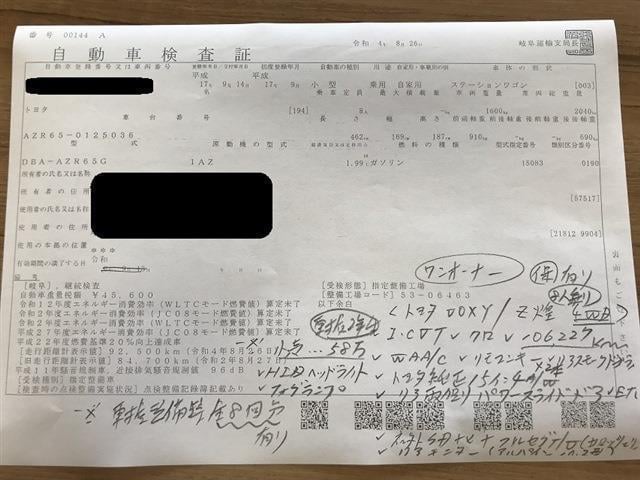 番号 00144 A
令和 4年 8月 26日
岐阜運輸支局長
自動車検査証
自動車登録番号又は車両番号 登録年月日/交付年月日 初度登録年月 自動車の種別 用途 自家用・事業用の別 車体の形状
平成 平成
17年 9月 14日 17年 9月 小型 乗用 自家用 ステーションワゴン [003]
車名 乗車定員 最大積載量 車両重量 車両総重量
トヨタ [194] 8人 -kg 1600kg 2040kg
車台番号 長さ 幅 高さ 前前軸重 前後軸重 後前軸重 後後軸重
AZR65-0125036 462cm 169cm 187cm 910kg -kg -kg 690kg
型式 原動機の型式 燃料の種類 型式指定番号 類別区分番号
DBA-AZR65G 1AZ 1.99L ガソリン 15083 0190
所有者の氏名又は名称
所有者の住所
[57517]
使用者の氏名又は名称
使用者の住所
[21812 9904]
使用の本拠の位置
有効期間の満了する日
令和
備考
[岐阜], 継続検査
自動車重量税額 ¥45,600
令和12年度エネルギー消費効率(WLTCモード燃費値) 算定未了
令和2年度エネルギー消費効率(WLTCモード燃費値) 算定未了
令和2年度エネルギー消費効率(JC08モード燃費値) 算定未了
平成27年度エネルギー消費効率(JC08モード燃費値) 算定未了
平成22年度燃費基準20%向上達成車
[走行距離計表示値] 92,500km (令和4年8月26日)
[旧走行距離計表示値] 84,700km (令和2年8月27日)
平成11年騒音規制車, 近接排気騒音規制値 96dB
[受検種別] 指定整備車
[検査時の点検整備実施状況] 点検整備記録簿記載あり
[受検形態] 指定整備工場
[整備工場コード] 53-06463
以下余白
ワンオーナー
保 有り
8人乗り
トヨタ VOXY / Z煌 4WD
車検2年付
I・CVT クロ 06223 Km
点… 58万
WAA/C リモコンキー×2 リヤスモークガラス
HIDヘッドライト
トヨタ純正15インチA/W
フォグランプ
リヤ両側パワースライドドア ETC
※ 車検整備時 全8回分 有り